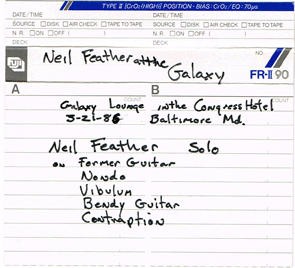 TYPE II [CrO2/HIGH] POSITION · BIAS: CrO2 / EQ: 70µs
DATE/TIME DATE/TIME
SOURCE □ DISK □ AIR CHECK □ TAPE TO TAPE □ SOURCE □ DISK □ AIR CHECK □ TAPE TO TAPE □
N. R. □ ON □ OFF ( ) N. R. □ ON □ OFF ( )
DECK DECK
FUJI
Neil Feather at the Galaxy
NO.
FR-II 90
A COUNT B COUNT
Galaxy Lounge in the Congress Hotel
3-21-86 Baltimore Md.
Neil Feather Solo
on Former Guitar
Nondo
Vibulum
Bendy Guitar
Contraption